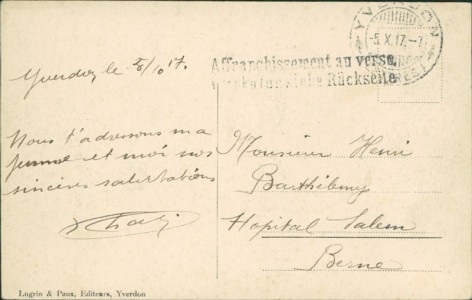 YVERDON
-5.X.17.-7
Affranchissement au verso.
siehe Rückseite
Yverdon, le 5/10 17.
Nous t'adressons ma
femme et moi nos
sincères salutations
Monsieur Henri
Barthélemy
Hopital Salem
Berne
Lugrin & Paux, Editeurs, Yverdon